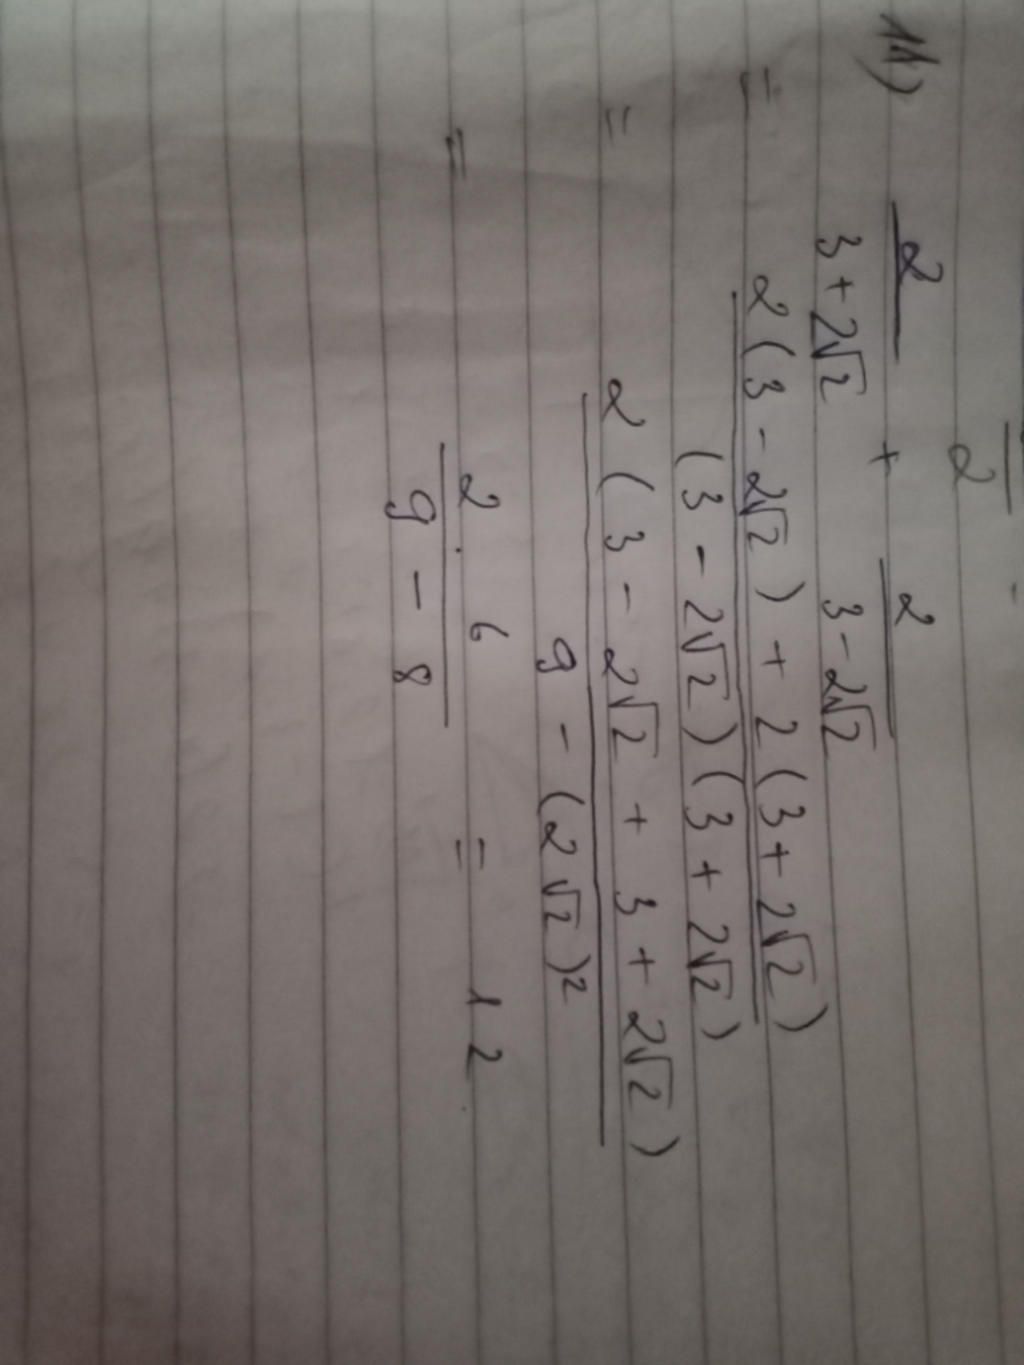 2
11) 2/(3+2√2) + 2/(3-2√2)
= (2(3-2√2)+2(3+2√2))/((3-2√2)(3+2√2))
= (2(3-2√2+3+2√2))/(9-(2√2)²)
= (2·6)/(9-8) = 12